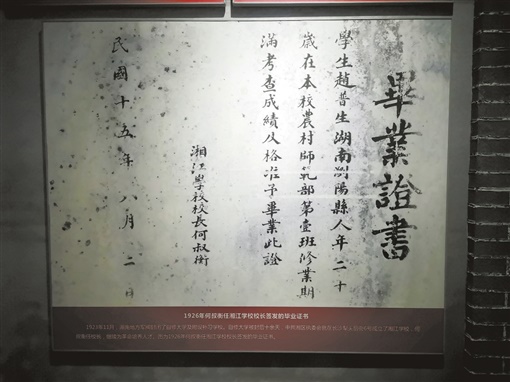 畢業證書
學生趙普生湖南瀏陽縣人年二十
歲在本校農村師範部第壹班修業期
滿考查成績及格准予畢業此證
湘江學校校長何叔衡
民國十五年八月二日
1926年何叔衡任湘江学校校长签发的毕业证书